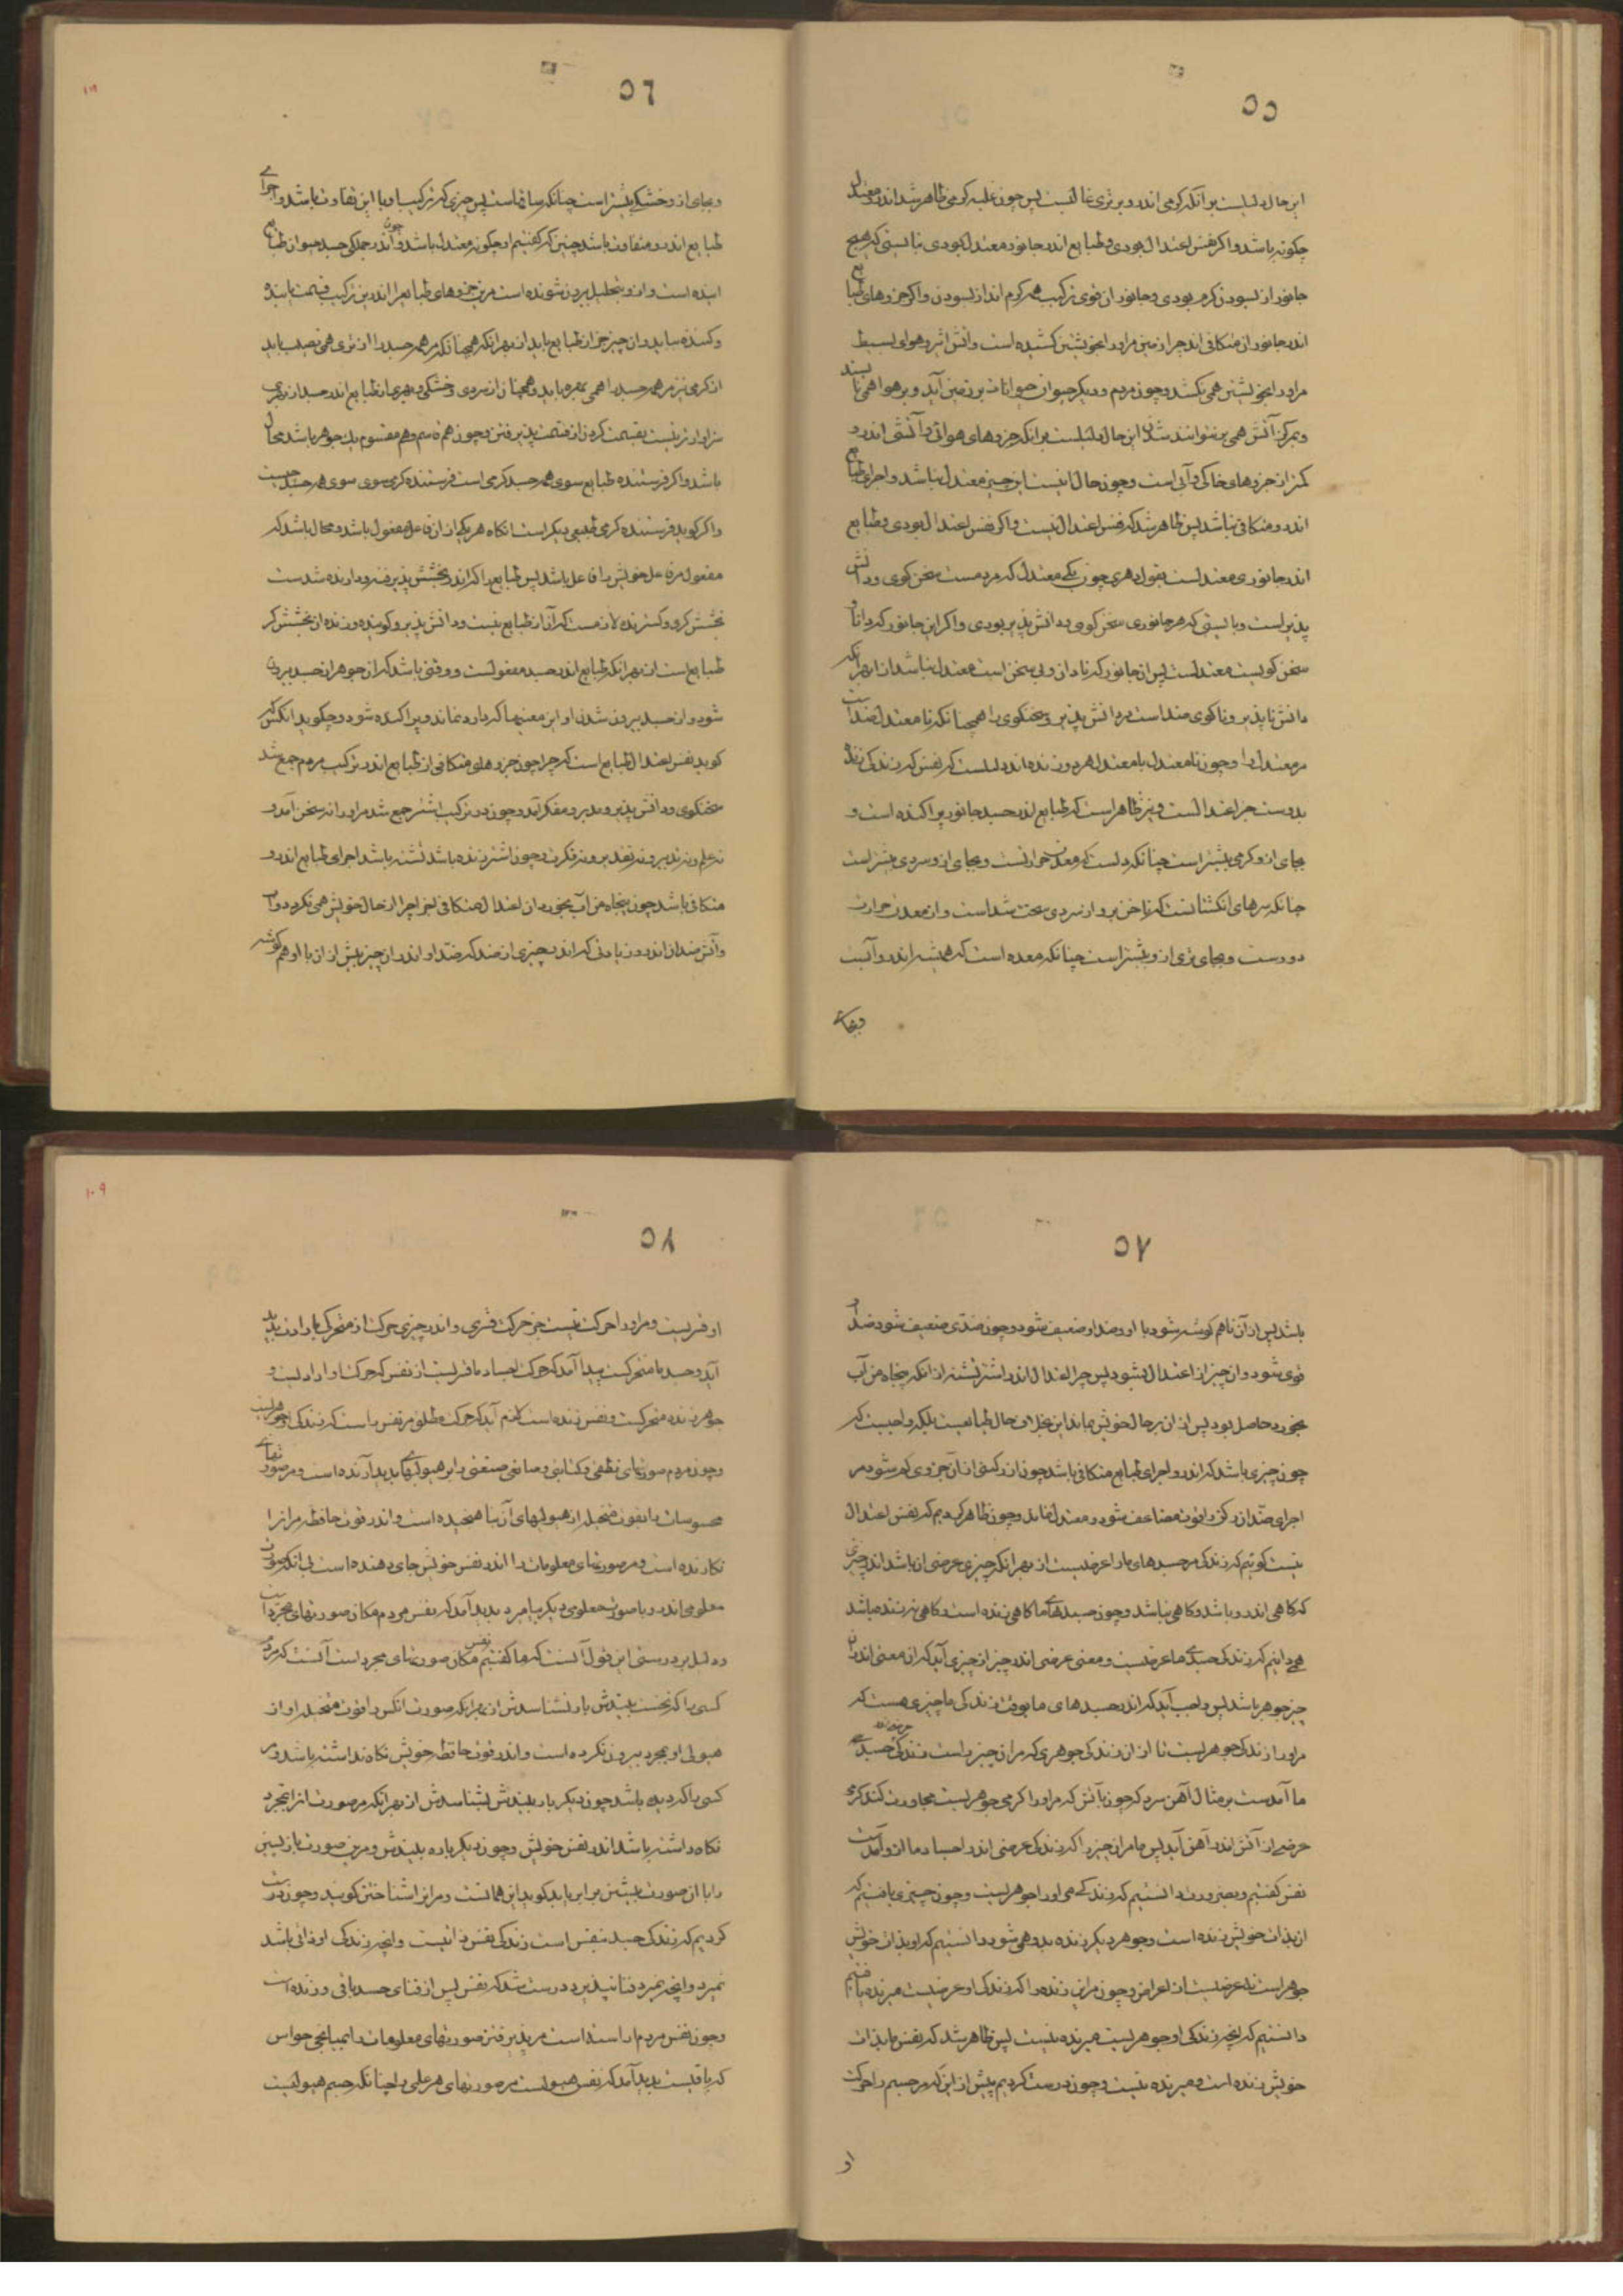 ٥٥
این حال دلیلست بر آنکه گرمی اندرو بر تری غالبست پس چون غلبه گرمی ظاهر شد اندرو معتدل
چگونه باشد و اگر نفس اعتدال بودی و طبایع اندر جانور معتدل بودی نبایستی که هیچ
جانور از بسودن گرم بودی و جانوران قوی ترکیب همه گرم اند از بسودن و اگر جزوهای طبایع
اندر جانوران متکافی اند چرا زمین مرورا بخویشتن کشیده است و آتش اثیر و هوای بسیط
مرورا بخویشتن همی نکشد و چون مردم و دیگر حیوان حیوانات بر زمین آید و بر هوا همی نایستد
و بمرکز آتش همی بر نتوانند شدن این حال دلیلست بر آنکه جزوهای هوائی و آتشی اندرو
کمتر از جزوهای خاکی و آبی است و چون حال اینست این چیز معتدل نباشد و اجزای طبایع
اندرو متکافی نباشد پس ظاهر شد که نفس اعتدال نیست و اگر نفس اعتدال بودی و طبایع
اندر جانوری معتدلست بقول دهری چون یکی معتدل که مردمست سخن گوی و دانش
پذیر است و بایستی که هر جانوری سخن گوی و دانش پذیر بودی و اگر این جانور که دانا و
سخن گویست معتدلست پس آن جانور که نادان و بی سخن است معتدل نباشد از بهر آنکه
دانش ناپذیر و ناگوی ضد است مر دانش پذیر و سخنگوی را همچنانکه نامعتدل ضد است
مر معتدل را و چون نامعتدل با معتدل هر دو زنده اند دلیلست که نفس که زندگی زنده
بدوست جز اعتدالست و نیز ظاهر است که طبایع اندر جسد جانور پراکنده است و
بجای ازو گرمی بیشتر است چنانکه دلست که معدن حرارتست و بجای ازو سردی بیشتر است
چنانکه سرهای انگشتانست که ناخن برو از سردی سخت شد است و از معدن حرارت
دورست و بجای تری ازو بیشتر است چنانکه معده است که همیشه اندرو آبست
و بجای
٥٦
و بجای ازو خشکی بیشتر است چنانکه ساقهاست پس چیزی که ترکیب او با این تفاوت باشد و اجزای
طبایع اندرو متفاوت باشد چنین که گفتیم او چگونه معتدل باشد و چون اندر جملگی جسد حیوان طبایع
آینده است و ازو بتحلیل بیرون شونده است مرین جزوهای طبایع را اندرین ترکیب قسمت یابنده
و کننده بباید و آن چیز جز از طبایع باید از بهر آنکه همچنانکه مر همه جسد را از تری همی نصیب باید
از گرمی نیز مر همه جسد را همی بهره باید و همچنان از سردی و خشکی و بهری از طبایع اندر جسد از بهری
سزاوارتر نیست بقسمت کردن از قسمت پذیرفتن و چون هم قاسم و هم مقسوم یک جوهر باشد محال
باشد و اگر فرستنده طبایع سوی همه جسد گرمی است فرستنده گرمی سوی همه جسد چیست
و اگر گوید فرستنده گرمی طبیعی دیگر است آنگاه هر یکی از آن فاعل مفعول باشد و محال باشد که
مفعول مر فاعل خویش را فاعل باشد پس طبایع را که اندر بخشش پذیرفته و دارنده شدست
بخشش کرد و گسترنده لازمست که آن از طبایع نیست و دانش پذیر و گوینده و زنده از بخشش گر
طبایع است از بهر آنکه طبایع اندر جسد مفعولست و وقتی باشد که از جوهر از جسد بیرون
شود و از جسد بیرون شدن او این معنیها که دارد نماند و پراکنده شود و چگوید آنکس که
گوید نفس اعتدال طبایع است که چرا چون جزوهای متکافی از طبایع اندر ترکیب مردم جمع شد
سخنگوی و دانش پذیر و مدبر و مفکر آمد و چون در ترکیب اشتر جمع شد مرورا نه سخن آمد و
نه علم و نه تدبیر و نه تقدیر و نه فکرت و چون اشتر زنده باشد تشنه باشد اجزای طبایع اندرو
متکافی باشد چون پنجاه من آب بخورد آن اعتدال متکافی چرا از حال خویش همی نگردد و آب
و آتش ضدان اندر و زیادتی که اندر چیزی از ضد که ضد او اندر آن چیز بیش از آن با او هم گوشه
٥٧
باشد پس از آن ناهم گوشه شود با او و ضد او ضعیف شود و چون ضدی ضعیف شود ضد او
قوی شود و آن چیز از اعتدال بشود پس چرا اعتدال اندر اشتر تشنه از آنکه پنجاه من آب
بخورد حاصل بود پس از آن بر حال خویش بماند این بخلاف حال طبایعست بلکه واجبست که
چون چیزی باشد که اندرو اجزای طبایع متکافی باشد چون از رکنی از آن جزوی کم شود مر
اجزای ضد آن رکن را قوت مضاعف شود و معتدل نماند و چون ظاهر کردیم که نفس اعتدال
نیست گوئیم که زندگی مر جسدهای ما را عرضیست از بهر آنکه چیزی عرضی آن باشد اندر چیزی
که گاهی اندرو باشد و گاهی نباشد و چون جسدهای ما گاهی زنده است و گاهی نه زنده باشد
همی دانیم که زندگی جسدی ما عرضیست و معنی عرضی اندر چیز از چیزی آید که آن معنی اندران
چیز جوهر باشد پس واجب آید که اندر جسدهای ما بوقت زندگی ما چیزی هست که
مرورا زندگی جوهریست تا از آن زندگی جوهری که مر آن چیز راست زندگی عرضی در جسدی
ما آمدست بر مثال آهن سرد که چون با آتش که مرورا گرمی جوهریست مجاورت کند گرمی
عرضی از آتش اندر آهن آید پس ما مر آن چیز را که زندگی عرضی اندر اجساد ما ازو آمدست
نفس گفتیم و بضرورت دانستیم که زندگی مر اورا جوهریست و چون چیزی یافتیم که
آن بذات خویش زنده است و جوهر دیگر زنده بدو همی شود دانستیم که او بذات خویش
جوهر است نه عرضیست از اعراض و چون مر این زنده را که زندگی او عرضیست میرنده یافتیم
دانستیم که آنچه زندگی او جوهریست میرنده نیست پس ظاهر شد که نفس ما بذات
خویش زنده است و میرنده نیست و چون درست کردیم پیش از این که مر جسم را حرکت
او
٥٨
او قسریست و مرورا حرکت نیست جز حرکت قسری و اندر چیزی حرکت از متحرک بارادت پدید
آید و جسد ما متحرکست پیدا آمد که حرکت اجساد ما قسریست از نفس که حرکت او ارادیست و
جوهر زنده متحرکست و نفس زنده است لازم آید که حرکت مطلق مر نفس راست که زندگی او جوهریست
و چون مردم صورتهای نطقی و کتابتی و صناعی صنعتی را بر هیولیها پدید آرنده است و مر صورتهای
محسوسات را بقوت متخیله از هیولیهای آن بیاهنجیده است و اندر قوت حافظه مر آن را
نگارنده است و مر صورتهای معلومات را اندر نفس خویش جای دهنده است بی آنکه صورت
معلومی اندرو با صورت معلومی دیگر بیامیزد پدید آمد که نفس مردم مکان صورتهای مجرد است
و دلیل بر درستی این قول آنست که ما گفتیم نفس مکان صورتهای مجرد است آنست که مردم
کسی را که نخست بیندش باز نشناسدش از بهر آنکه صورت آنکس را قوت متخیله او از
هیولی او مجرد بیرون نکرده است و اندر قوت حافظه خویش نگاه نداشته باشد و مر
کسی را که دیده باشد چون دیگر بار بیندش بشناسدش از بهر آنکه مر صورت آن را مجرد
نگاه داشته باشد اندر نفس خویش و چون دیگر باره بیندش و مرین صورت بازپسین
را با آن صورت پیشین برابر یابد گوید این همانست و مر این را شناختن گویند و چون درست
کردیم که زندگی جسد بنفس است زندگی نفس ذاتیست و آنچه زندگی او ذاتی باشد
نمیرد و آنچه نمیرد فنا نپذیرد درست شد که نفس پس از فنای جسد باقی و زنده است
و چون نفس مردم آراسته است مر پذیرفتن صورتهای معلومات را بمیانجی حواس
که یافتست پدید آمد که نفس هیولیست مر صورتهای هر علمی را چنانکه جسم هیولیست